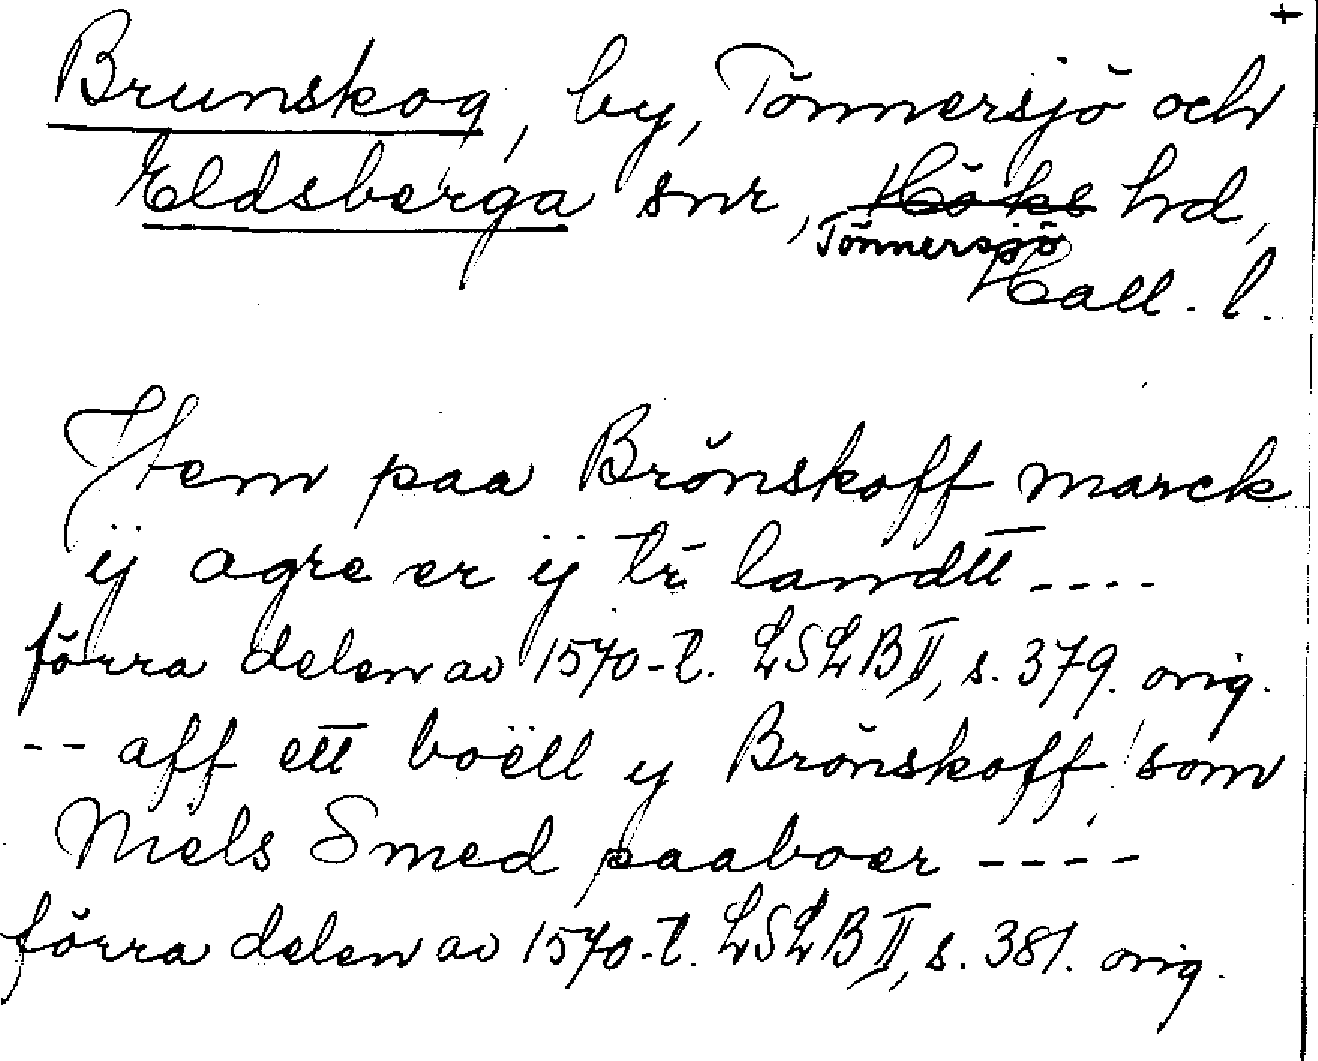 +
Brunskog, by, Tönnersjö och
Eldsberga snr, Höks hd,
Tönnersjö
Hall. l.
Item paa Brönskoff marck
ij agre er ij tr landtt ----
förra delen av 1570-t. LSLB II, s. 379. orig.
-- aff ett boëll y Brönskoff, som
Niels Smed paaboer ----
förra delen av 1570-t. LSLB II, s. 381. orig.